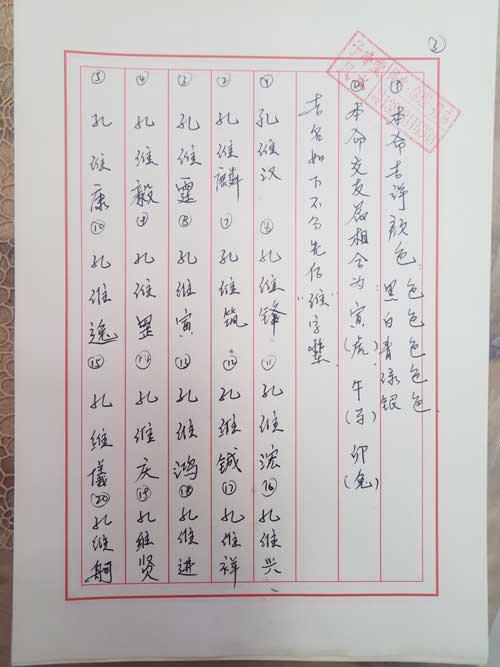 本命吉祥颜色:黑色白色青色绿色银色
本命交友属相合为寅(虎)午(马)卯(兔)
吉名如下不分先后"维"字辈
①孔维汉⑥孔维锋⑪孔维⑯孔维兴
②孔维麟⑦孔维筑⑫孔维铖⑰孔维祥
③孔维霆⑧孔维寅⑬孔维鸿⑱孔维进
④孔维毅⑨孔维罡⑭孔维庆⑲孔维贤
⑤孔维康⑩孔维逸⑮孔维儀⑳孔维舸